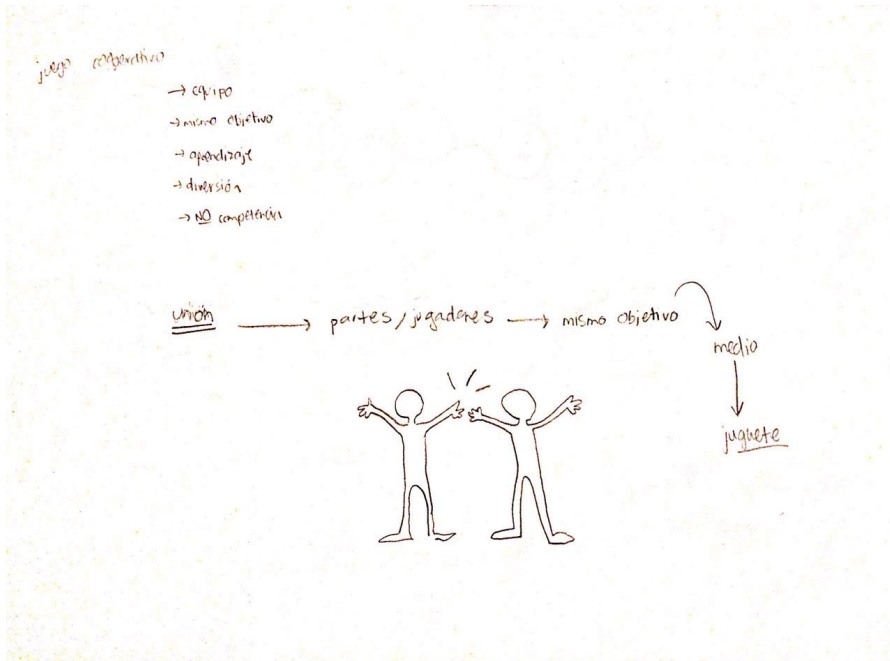 juego cooperativo
→ equipo
→ mismo objetivo
→ aprendizaje
→ diversión
→ NO competencia
unión → partes / jugadores → mismo objetivo
medio
juguete